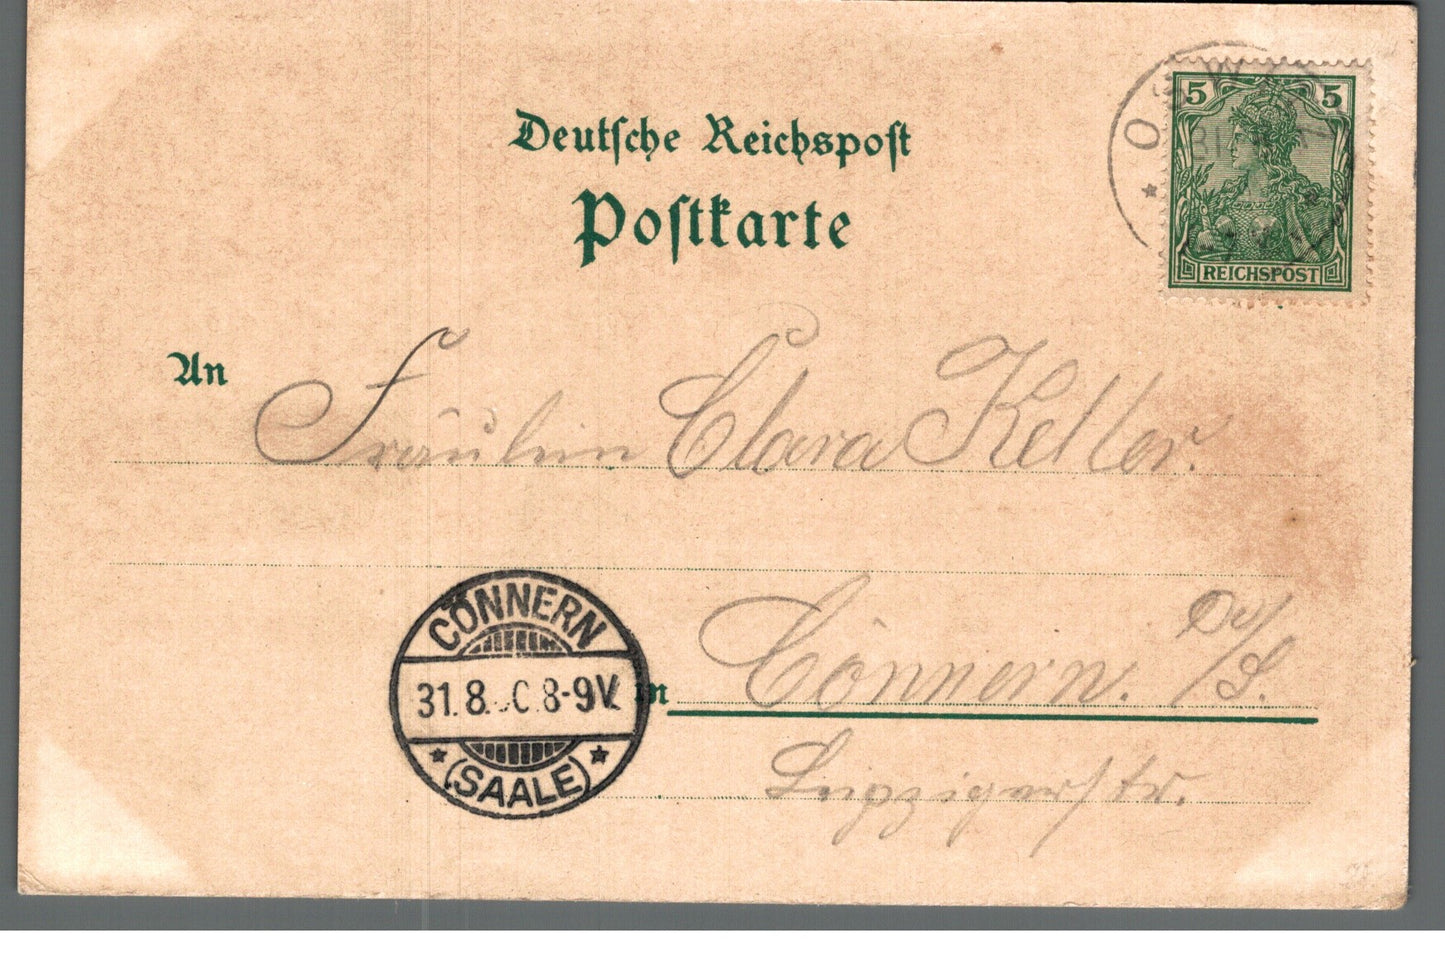 Deutsche Reichspost
Postkarte
5 5
REICHSPOST
An Fräulein Clara Keller.
in Cönnern. a/S.
Leipzigerstr.
CÖNNERN
31.8. 8-9V.
(SAALE)